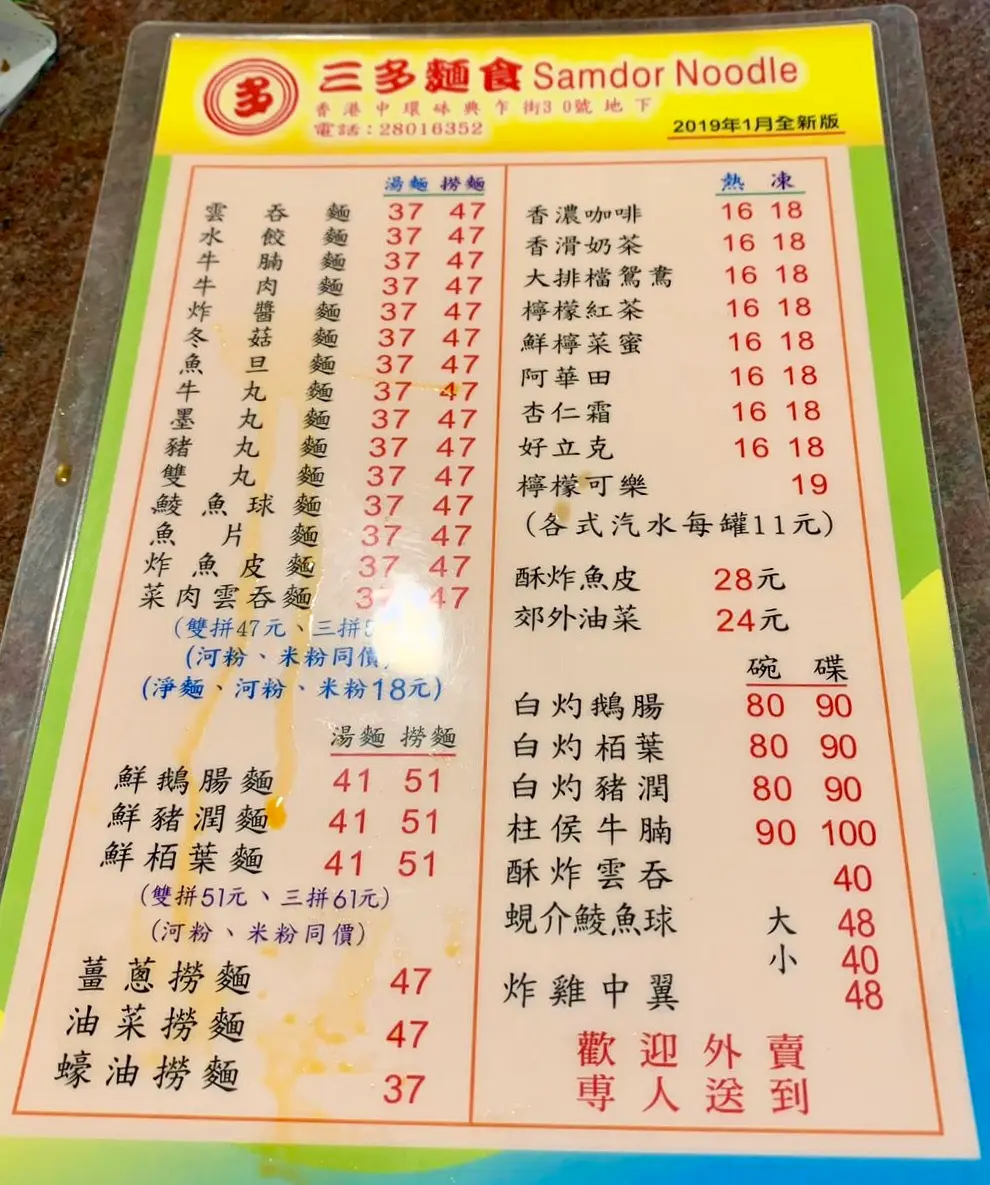 多
三多麵食 Samdor Noodle
香港中環砵典乍街30號地下
電話:28016352
2019年1月全新版
湯麵 撈麵
雲吞麵 37 47
水餃麵 37 47
牛腩麵 37 47
牛肉麵 37 47
炸醬麵 37 47
冬菇麵 37 47
魚旦麵 37 47
牛丸麵 37 47
墨丸麵 37 47
豬丸麵 37 47
雙丸麵 37 47
鯪魚球麵 37 47
魚片麵 37 47
炸魚皮麵 37 47
菜肉雲吞麵 3 47
(雙拼47元、三拼
(河粉、米粉同價
(淨麵、河粉、米粉18元)
湯麵 撈麵
鮮鵝腸麵 41 51
鮮豬潤麵 41 51
鮮栢葉麵 41 51
(雙拼51元、三拼61元)
(河粉、米粉同價)
薑蔥撈麵 47
油菜撈麵 47
蠔油撈麵 37
熱 凍
香濃咖啡 16 18
香滑奶茶 16 18
大排檔鴛鴦 16 18
檸檬紅茶 16 18
鮮檸菜蜜 16 18
阿華田 16 18
杏仁霜 16 18
好立克 16 18
檸檬可樂 19
(各式汽水每罐11元)
酥炸魚皮 28元
郊外油菜 24元
碗 碟
白灼鵝腸 80 90
白灼栢葉 80 90
白灼豬潤 80 90
柱侯牛腩 90 100
酥炸雲吞 40
蜆介鯪魚球 大 48
小 40
炸雞中翼 48
歡迎外賣
專人送到